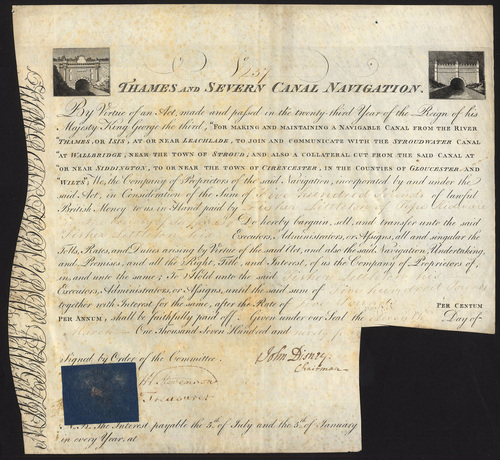 THAMES AND SEVERN CANAL NAVIGATION.
By Virtue of an Act, made and passed in the twenty-third Year of the Reign of his
Majesty King George the third, "FOR MAKING AND MAINTAINING A NAVIGABLE CANAL FROM THE RIVER
THAMES, OR ISIS, AT OR NEAR LEACHLADE, TO JOIN AND COMMUNICATE WITH THE STROUDWATER CANAL
AT WALLBRIDGE, NEAR THE TOWN OF STROUD; AND ALSO A COLLATERAL CUT FROM THE SAID CANAL AT
OR NEAR SIDDINGTON, TO OR NEAR THE TOWN OF CIRENCESTER, IN THE COUNTIES OF GLOUCESTER AND
WILTS"; We, the Company of Proprietors of the said Navigation, incorporated by and under the
said Act, in Consideration of the Sum of of lawful
British Money to us in Hand paid by
Do hereby bargain, sell, and transfer unto the said
Executors, Administrators, or Assigns, all and singular the
Tolls, Rates, and Duties arising by Virtue of the said Act, and also the said Navigation, Undertaking,
and Premises, and all the Right, Title, and Interest, of us the Company of Proprietors of
in, and unto the same; To Hold unto the said
Executors, Administrators, or Assigns, until the said sum of
together with Interest for the same, after the Rate of PER CENTUM
PER ANNUM, shall be faithfully paid off. Given under our Seal the Day of
One Thousand Seven Hundred and
Signed by Order of the Committee.
John Disney
Chairman
Treasurer
N.B. The Interest payable the 5th of July and the 5th of January
in every Year, at